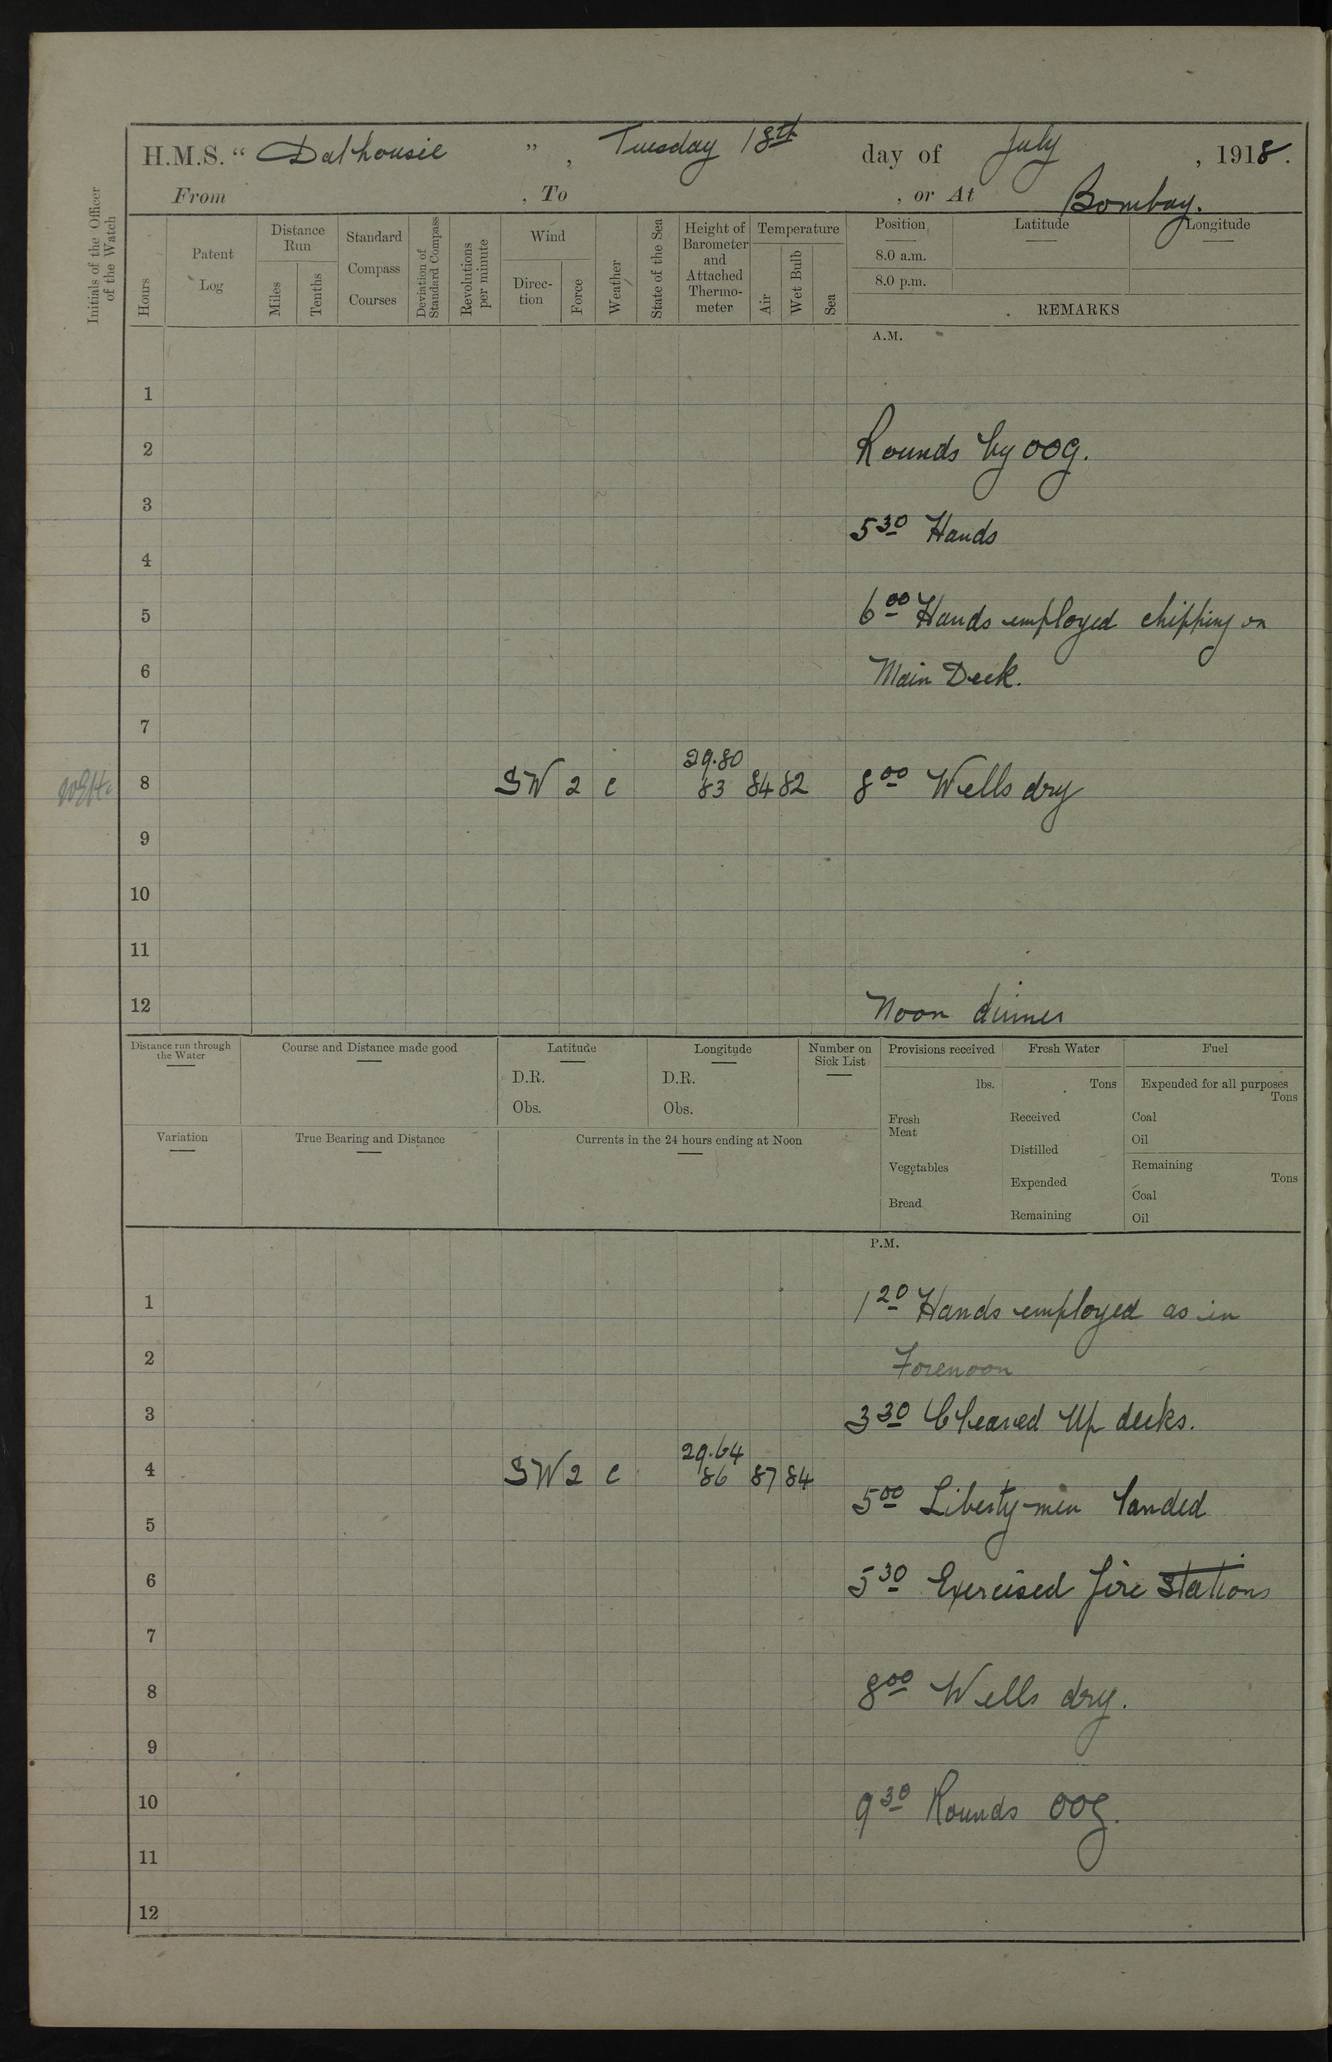 H.M.S. "Dalhousie", Tuesday 18th day of July, 1918.
From , To , or At Bombay.
Initials of the Officer of the Watch
Hours
Patent Log
Distance Run
Miles
Tenths
Standard Compass Courses
Deviation of Standard Compass
Revolutions per minute
Wind
Direction
Force
Weather
State of the Sea
Height of Barometer and Attached Thermometer
Temperature
Air
Wet Bulb
Sea
Position Latitude Longitude
8.0 a.m.
8.0 p.m.
REMARKS
A.M.
1
2 Rounds by OOG.
3
5 30 Hands
4
5 6 00 Hands employed chipping on
6 Main Deck.
7
29.80
8 SW 2 c 83 84 82 8 00 Wells dry
9
10
11
12 Noon dinner
Distance run through the Water
Course and Distance made good
Latitude
D.R.
Obs.
Longitude
D.R.
Obs.
Number on Sick List
Provisions received
lbs.
Fresh Meat
Vegetables
Bread
Fresh Water
Tons
Received
Distilled
Expended
Remaining
Fuel
Expended for all purposes
Tons
Coal
Oil
Remaining
Tons
Coal
Oil
Variation
True Bearing and Distance
Currents in the 24 hours ending at Noon
P.M.
1 1 20 Hands employed as in
2 Forenoon
3 3 30 Cleared Up decks.
29.64
4 SW 2 c 86 87 84
5 00 Liberty-men landed
5
6 5 30 Exercised fire stations
7
8 8 00 Wells dry.
9
10 9 30 Rounds OOG.
11
12